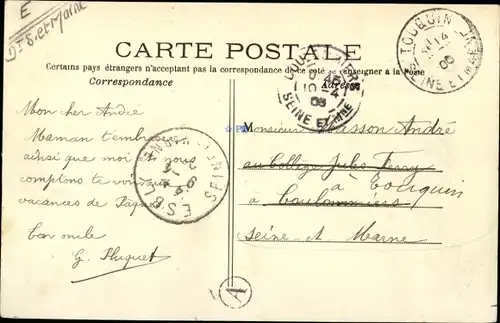 E
Dt S. et Marne
CARTE POSTALE
Certains pays étrangers n'acceptant pas la correspondance de ce côté se renseigner à la Poste
Correspondance
Adresse
TOUQUIN
SEINE ET MARNE
COULOMMIERS
SEINE ET MNE
Mon cher André
Maman t'embrasse
ainsi que moi et nous
comptons te voir aux
vacances de Pâques
ton oncle
G. Pluquet
Monsieur Masson André
au Collège Jules Ferry
à Touquin
à Coulommiers
Seine et Marne
A